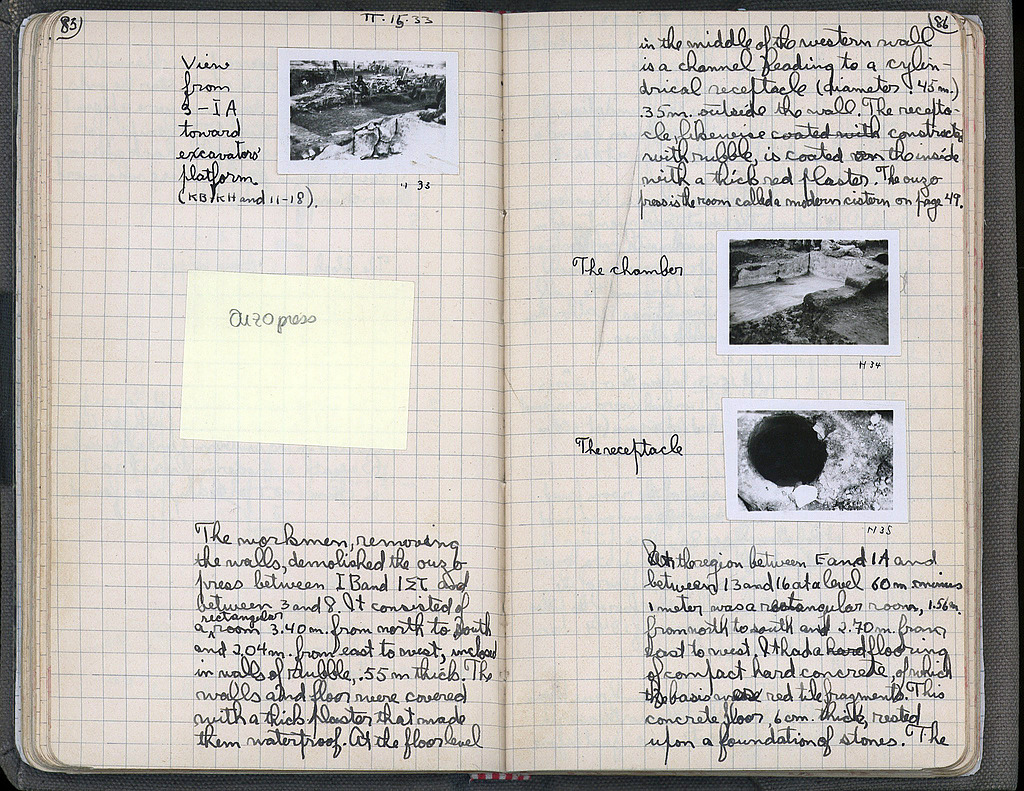 85
II.15.33
View
from
3-IA
toward
excavators'
platform
(KB, KH and 11-18).
H 33
Ouzo press
The workmen, removing
the walls, demolished the ouzo
press between IB and IΣT and
between 3 and 8. It consisted of
a rectangular room 3.40 m. from north to south
and 2.04 m. from east to west, inclosed
in walls of rubble, .55 m thick. The
walls and floor were covered
with a thick plaster that made
them waterproof. At the floor level
86
in the middle of the western wall
is a channel leading to a cylin-
drical receptacle (diameter .45 m.)
.35 m. outside the wall. The recepta-
cle, likewise coated with constructed
with rubble, is coated on the inside
with a thick red plaster. The ouzo
press is the room called a modern cistern on page 49.
The chamber
H 34
The receptacle
H 35
In the region between E and IA and
between 13 and 16 at a level 60 m minus
1 meter was a rectangular room, 1.56 m.
from north to south and 2.70 m. from
east to west. It had a hard flooring
of compact hard concrete, of which
the basis were red tile fragments. This
concrete floor, 6 cm. thick, rested
upon a foundation of stones. The